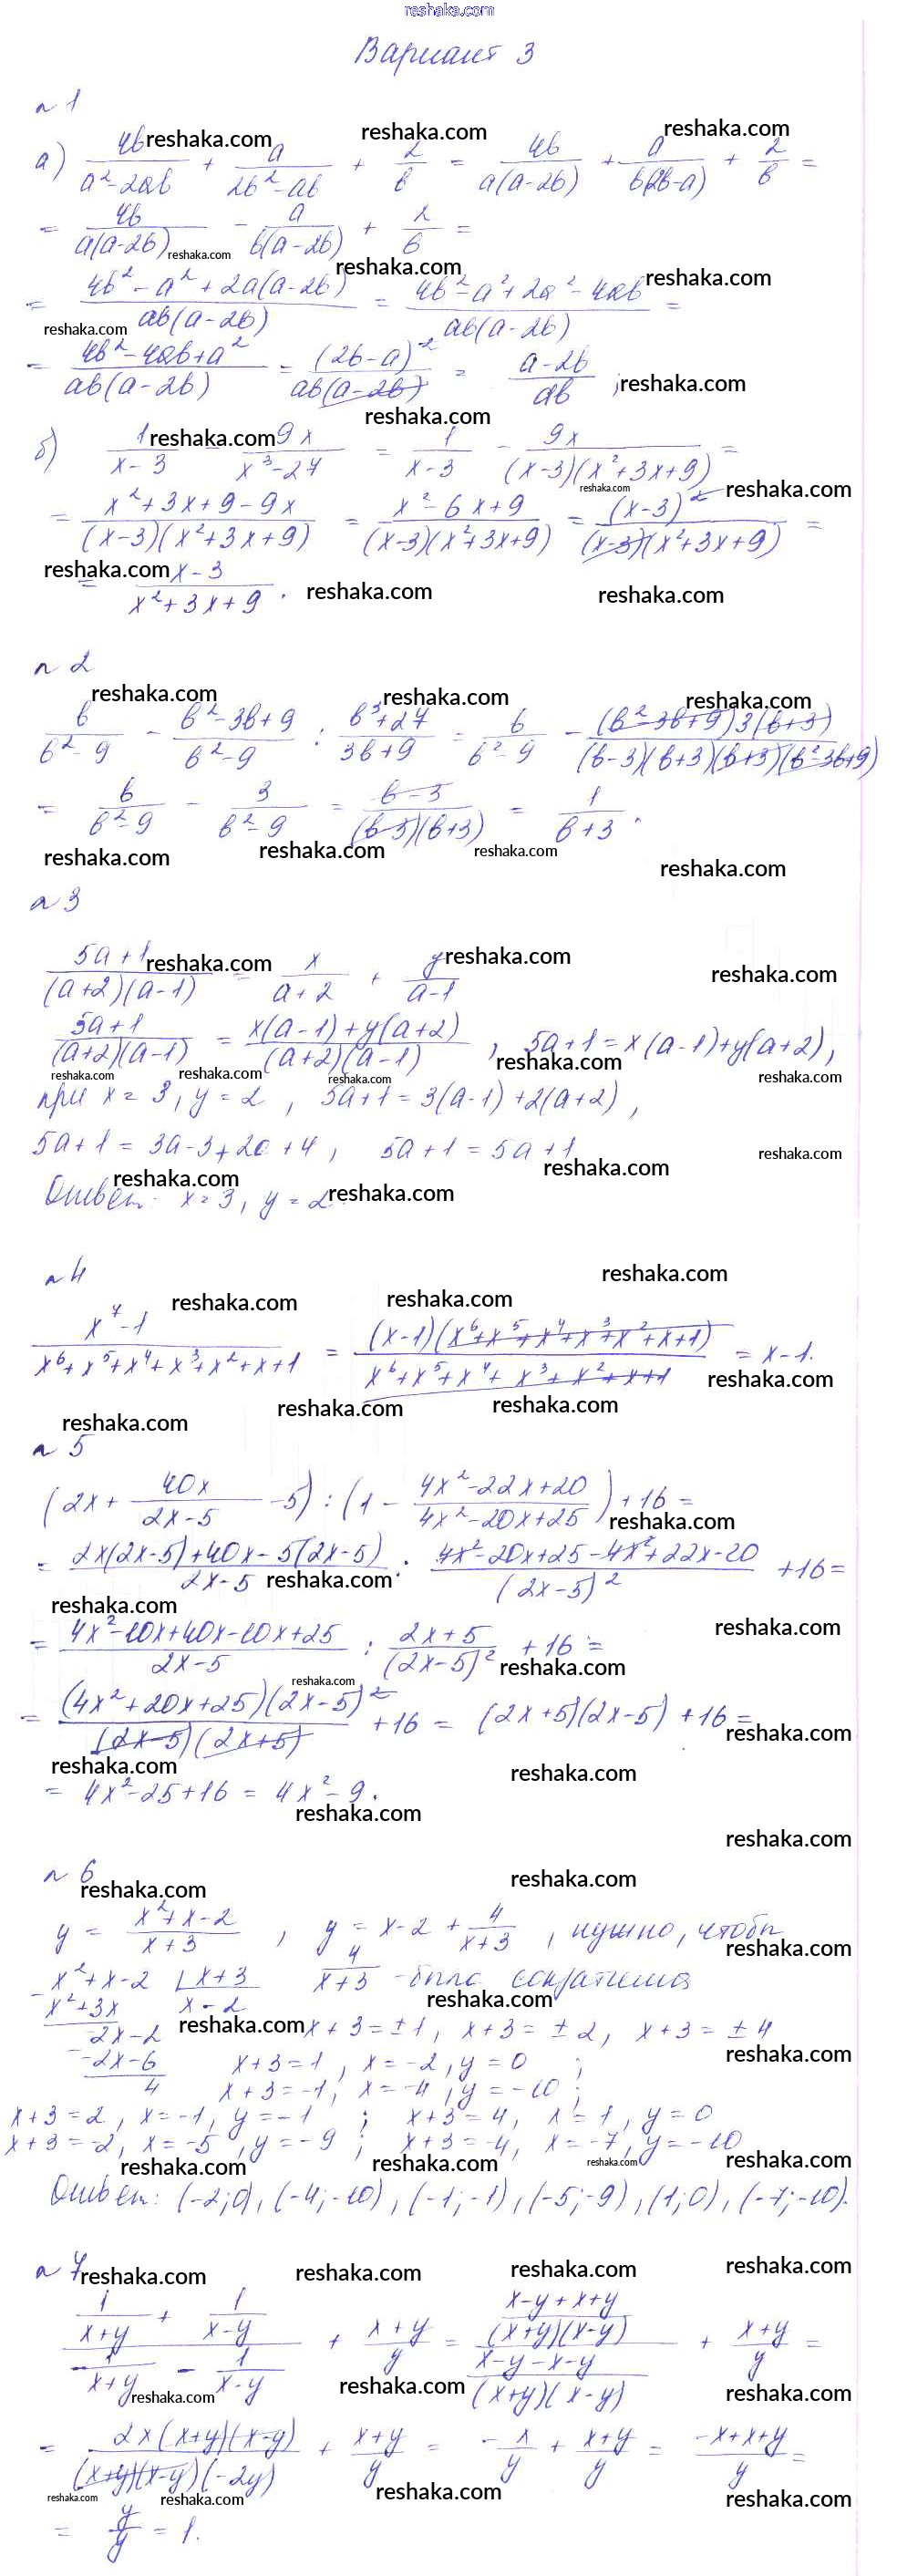 reshaka.com
Вариант 3
n 1
а) 4b/(a²-2ab) + a/(2b²-ab) + 2/b = 4b/(a(a-2b)) + a/(b(2b-a)) + 2/b =
= 4b/(a(a-2b)) - a/(b(a-2b)) + 2/b =
= (4b²-a²+2a(a-2b))/(ab(a-2b)) = (4b²-a²+2a²-4ab)/(ab(a-2b)) =
= (4b²-4ab+a²)/(ab(a-2b)) = (2b-a)²/(ab(a-2b)) = (a-2b)/(ab) ;
б) 1/(x-3) - 9x/(x³-27) = 1/(x-3) - 9x/((x-3)(x²+3x+9)) =
= (x²+3x+9-9x)/((x-3)(x²+3x+9)) = (x²-6x+9)/((x-3)(x²+3x+9)) = (x-3)²/((x-3)(x²+3x+9)) =
= (x-3)/(x²+3x+9) .
n 2
b/(b²-9) - (b²-3b+9)/(b²-9) : (b³+27)/(3b+9) = b/(b²-9) - ((b²-3b+9)3(b+3))/((b-3)(b+3)(b+3)(b²-3b+9))
= b/(b²-9) - 3/(b²-9) = (b-3)/((b-3)(b+3)) = 1/(b+3) .
n 3
(5a+1)/((a+2)(a-1)) = x/(a+2) + y/(a-1)
(5a+1)/((a+2)(a-1)) = (x(a-1)+y(a+2))/((a+2)(a-1)) , 5a+1 = x(a-1)+y(a+2),
при x = 3, y = 2 , 5a+1 = 3(a-1)+2(a+2) ,
5a+1 = 3a-3+2a+4 , 5a+1 = 5a+1
Ответ: x = 3, y = 2
n 4
(x⁷-1)/(x⁶+x⁵+x⁴+x³+x²+x+1) = ((x-1)(x⁶+x⁵+x⁴+x³+x²+x+1))/(x⁶+x⁵+x⁴+x³+x²+x+1) = x-1.
n 5
(2x + 40x/(2x-5) - 5) : (1 - (4x²-22x+20)/(4x²-20x+25)) + 16 =
= (2x(2x-5)+40x-5(2x-5))/(2x-5) : (4x²-20x+25-4x²+22x-20)/(2x-5)² + 16 =
= (4x²-10x+40x-10x+25)/(2x-5) : (2x+5)/(2x-5)² + 16 =
= ((4x²+20x+25)(2x-5)²)/((2x-5)(2x+5)) + 16 = (2x+5)(2x-5) + 16 =
= 4x²-25+16 = 4x²-9.
n 6
y = (x²+x-2)/(x+3) , y = x-2 + 4/(x+3) , нужно, чтобы
x²+x-2 | x+3 4/(x+3) - была сократима
x²+3x x-2
-2x-2 x+3 = ±1, x+3 = ±2, x+3 = ±4
-2x-6 x+3 = 1, x = -2, y = 0 ;
4 x+3 = -1, x = -4, y = -10 ;
x+3 = 2, x = -1, y = -1 ; x+3 = 4, x = 1, y = 0
x+3 = -2, x = -5, y = -9 ; x+3 = -4, x = -7, y = -10
Ответ: (-2;0), (-4;-10), (-1;-1), (-5;-9), (1;0), (-7;-10).
n 7
(1/(x+y) + 1/(x-y))/(1/(x+y) - 1/(x-y)) + (x+y)/y = ((x-y+x+y)/((x+y)(x-y)))/((x-y-x-y)/((x+y)(x-y))) + (x+y)/y =
= (2x(x+y)(x-y))/((x+y)(x-y)(-2y)) + (x+y)/y = -x/y + (x+y)/y = (-x+x+y)/y =
= y/y = 1.